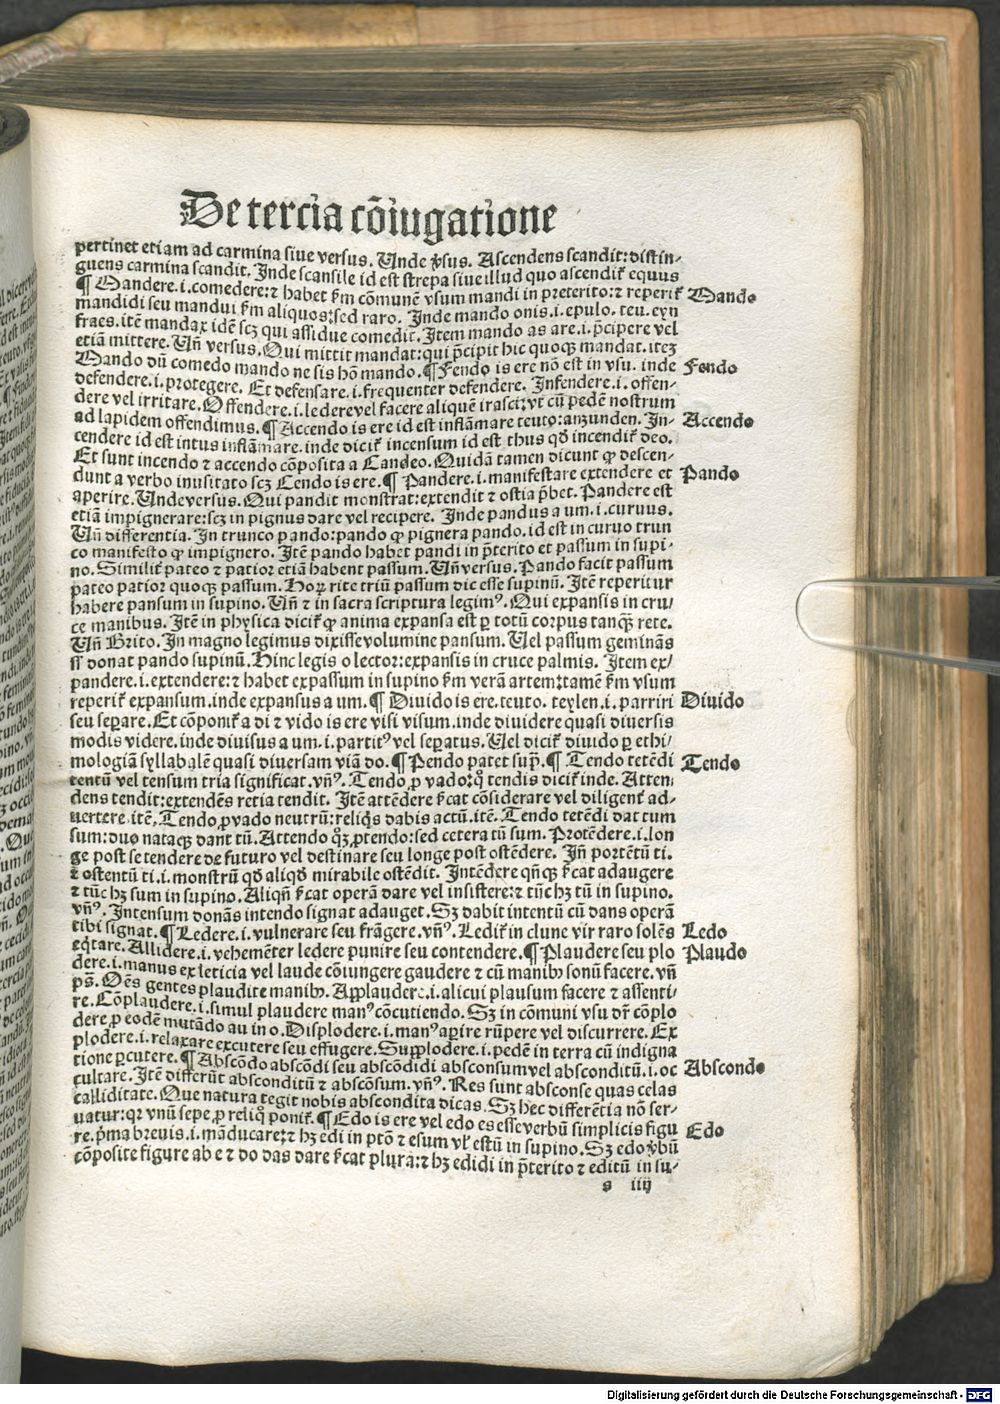 De tercia cõiugatione
pertinet etiam ad carmina siue versus. Unde v̉sus. Ascendens scandit: distin-
guens carmina scandit. Inde scansile id est strepa siue illud quo ascendit̃ equus
¶ Mandere .i. comedere: ⁊ habet fm cõmunẽ vsum mandi in preterito: ⁊ reperit̃ Mando
mandidi seu mandui fm aliquos: sed raro. Inde mando onis .i. epulo. teu. eyn
fraes. itẽ mandax idẽ scꝫ qui assidue comedit. Item mando as are .i. p̃cipere vel
etiã mittere. Uñ versus. Qui mittit mandat: qui p̃cipit hic quoqꝫ mandat. iteꝫ
Mando dũ comedo mando ne sis hõ mando. ¶ Fendo is ere nõ est in vsu. inde Fendo
defendere .i. protegere. Et defensare .i. frequenter defendere. Infendere .i. offen-
dere vel irritare. Offendere .i. ledere vel facere aliquẽ irasci: vt cũ pedẽ nostrum
ad lapidem offendimus. ¶ Accendo is ere id est inflãmare teuto: anzunden. In- Accendo
cendere id est intus inflãmare. inde dicit̃ incensum id est thus qd̃ incendit̃ deo.
Et sunt incendo ⁊ accendo cõposita a Candeo. Quidã tamen dicunt ꝙ descen-
dunt a verbo inusitato scꝫ Cendo is ere. ¶ Pandere .i. manifestare extendere et Pando
aperire. Unde versus. Qui pandit monstrat: extendit ⁊ ostia p̃bet. Pandere est
etiã impignerare: scꝫ in pignus dare vel recipere. Inde pandus a um .i. curuus.
Uñ differentia. In trunco pando: pando ꝙ pignera pando. id est in curuo trun
co manifesto ꝙ impignero. Itẽ pando habet pandi in p̃terito et passum in supi-
no. Similit̃ pateo ⁊ patior etiã habent passum. Uñ versus. Pando facit passum
pateo patior quoqꝫ passum. Hoꝝ rite triũ passum dic esse supinũ. Itẽ reperitur
habere pansum in supino. Uñ ⁊ in sacra scriptura legimꝰ. Qui expansis in cru-
ce manibus. Itẽ in phisica dicit̃ ꝙ anima expansa est ꝑ totũ corpus tanqꝫ rete.
Uñ Brito. In magno legimus dixisse volumine pansum. Uel passum geminãs
ss donat pando supinũ. Hinc legis o lector: expansis in cruce palmis. Item ex-
pandere .i. extendere: ⁊ habet expassum in supino fm verã artem: tamẽ fm vsum
reperit̃ expansum. inde expansus a um. ¶ Diuido is ere. teuto. teylen .i. partiri Diuido
seu seꝑare. Et cõponit̃ a di ⁊ vido is ere visi visum. inde diuidere quasi diuersis
modis videre. inde diuisus a um .i. partitꝰ vel seꝑatus. Uel dicit̃ diuido ꝑ ethi-
mologiã syllabalẽ quasi diuersam viã do. ¶ Pendo patet sup̃. ¶ Tendo tetẽdi Tendo
tentũ vel tensum tria significat. vñꝰ. Tendo ꝓ vado: tendis dicit̃ inde. Atten
dens tendit: extendẽs retia tendit. Itẽ attẽdere fcat cõsiderare vel diligent̃ ad-
uertere. itẽ. Tendo ꝓ vado neutrũ: reliqs dabis actũ. itẽ. Tendo tetẽdi dat tum
sum: duo nataqꝫ dant tũ. Attendo qꝫ ꝓtendo: sed cetera tũ sum. Protẽdere .i. lon
ge post se tendere de futuro vel destinare seu longe post ostẽdere. Iñ portẽtũ ti.
⁊ ostentũ ti .i. monstrũ qd̃ aliqd̃ mirabile ostẽdit. Intẽdere qñqꝫ fcat adaugere
⁊ tũc hꝫ sum in supino. Aliqñ fcat operã dare vel insistere: ⁊ tũc hꝫ tũ in supino.
vñꝰ. Intensum donãs intendo signat adauget. Sꝫ dabit intentũ cũ dans operã
tibi signat. ¶ Ledere .i. vulnerare seu frãgere. vñꝰ. Ledit̃ in clune vir raro solẽs Ledo
eq̃tare. Allidere .i. vehemẽter ledere punire seu contendere. ¶ Plaudere seu plo Plaudo
dere .i. manus ex leticia vel laude cõiungere gaudere ⁊ cũ manibꝫ sonũ facere. vñ
pš. Oẽs gentes plaudite manibꝫ. Applaudere .i. alicui plausum facere ⁊ assenti-
re. Cõplaudere .i. simul plaudere manꝰ cõcutiendo. Sꝫ in cõmuni vsu dr̃ cõplo
dere ꝓ eodẽ mutãdo au in o. Displodere .i. manꝰ aꝑire rũpere vel discurrere. Ex
plodere .i. relaxare excutere seu effugere. Supplodere .i. pedẽ in terra cũ indigna
tione ꝑcutere. ¶ Abscõdo abscõdi seu abscõdidi absconsum vel absconditũ .i. oc Abscondo
cultare. Itẽ differũt absconditũ ⁊ abscõsum. vñꝰ. Res sunt absconse quas celas
calliditate. Que natura tegit nobis abscondita dicas. Sꝫ hec differẽtia nõ ser-
uatur: qꝛ vnũ sepe ꝓ reliq̊ ponit̃. ¶ Edo is ere vel edo es esse verbũ simplicis figu
re. p̃ma breuis .i. mãducare: ⁊ hꝫ edi in ptõ ⁊ esum vl̃ estũ in supino. Sꝫ edo v̉bũ Edo
cõposite figure ab e ⁊ do das dare fcat plura: ⁊ hꝫ edidi in p̃terito ⁊ editũ in su-
s iiij
Digitalisierung gefördert durch die Deutsche Forschungsgemeinschaft - DFG